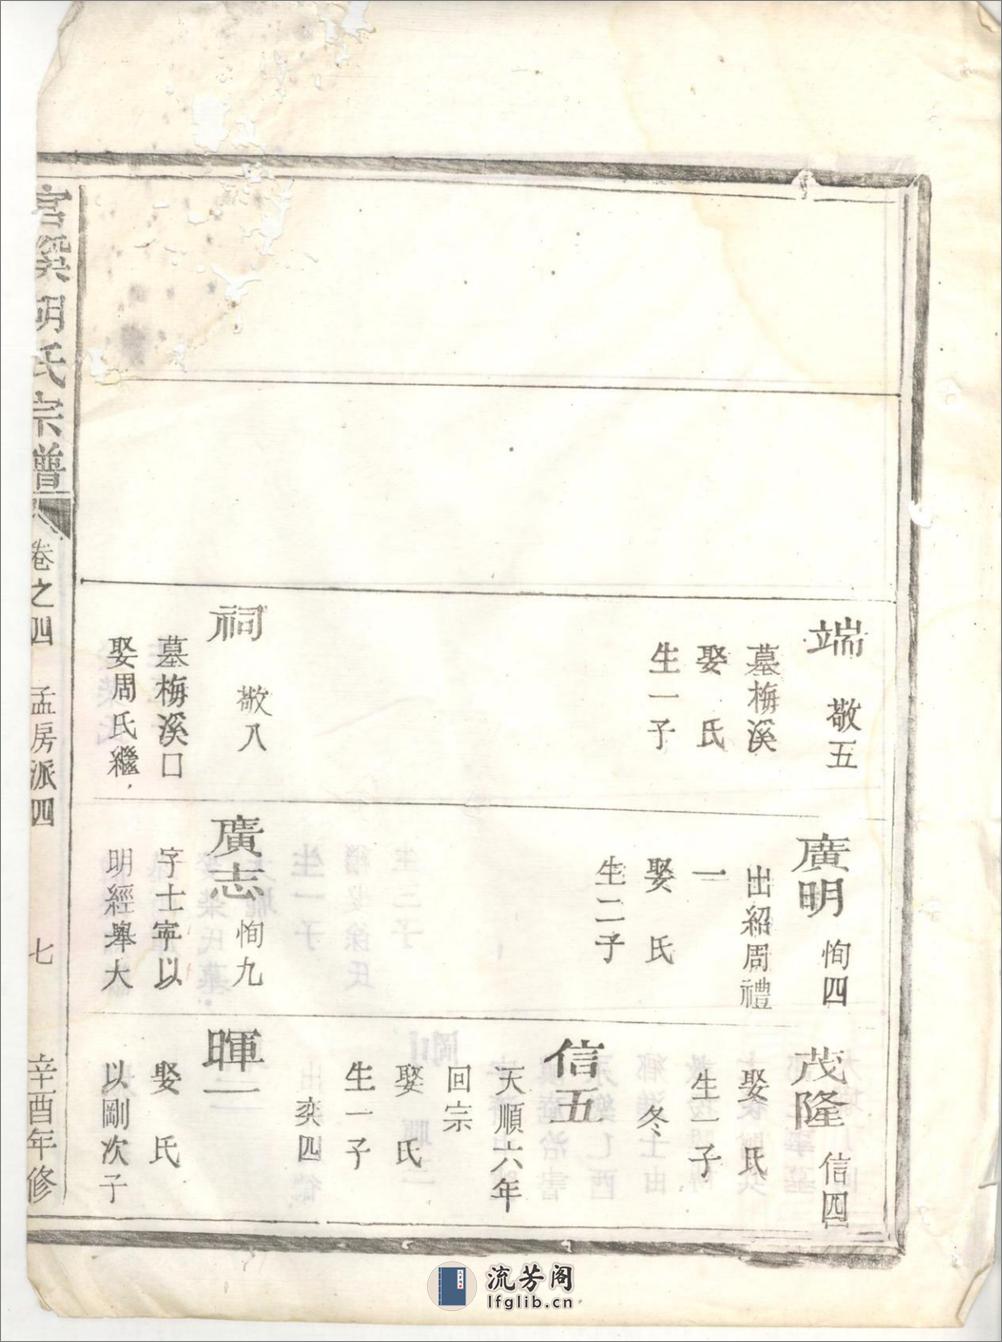 端 敬五
墓梅溪
娶 氏
生一子
祠 敬八
墓梅溪口
娶周氏繼
廣明 恂四
出紹周禮
一
娶 氏
生二子
廣志 恂九
字士寧以
明經舉大
茂隆 信四
娶 氏
生一子
冬
信五
天順六年
回宗
娶 氏
生一子
奕四
暉二
娶 氏
以剛次子
宮 胡氏宗譜
卷之四 孟房派四 七 辛酉年修
流芳阁
lfglib.cn